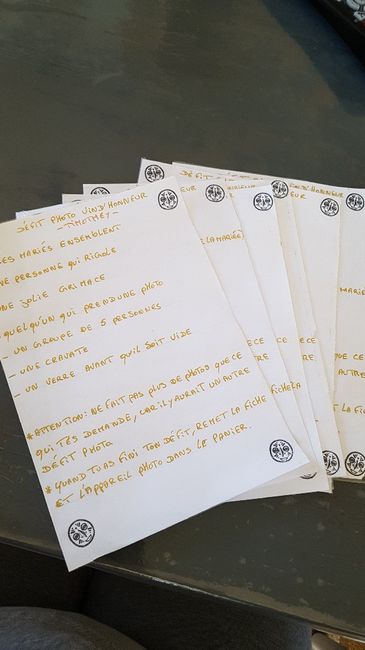 DÉFIT PHOTO VIND'HONNEUR
- TIMOTHEY -
ES MARIÉS ENSEMBLENT
NE PERSONNE QUI RIGOLE
NE JOLIE GRIMACE
QUELQU'UN QUI PREND UNE PHOTO
- UN GROUPE DE 5 PERSONNES
- UNE CRAVATE
- UN VERRE AVANT QU'IL SOIT VIDE
*ATTENTION: NE FAIT PAS PLUS DE PHOTOS QUE CE
QUI T'ES DEMANDÉ, CAR IL Y AURAIT UN AUTRE
DÉFIT PHOTO
*QUAND TU AS FINI TON DÉFIT, REMET LA FICHE
ET L'APPAREIL PHOTO DANS LE PANIER.
EUR
LA MARIÉE)
QUE CE
AUTRE
D'HONNEUR
MARIÉ
QUE CE
AUTRE
LA FI